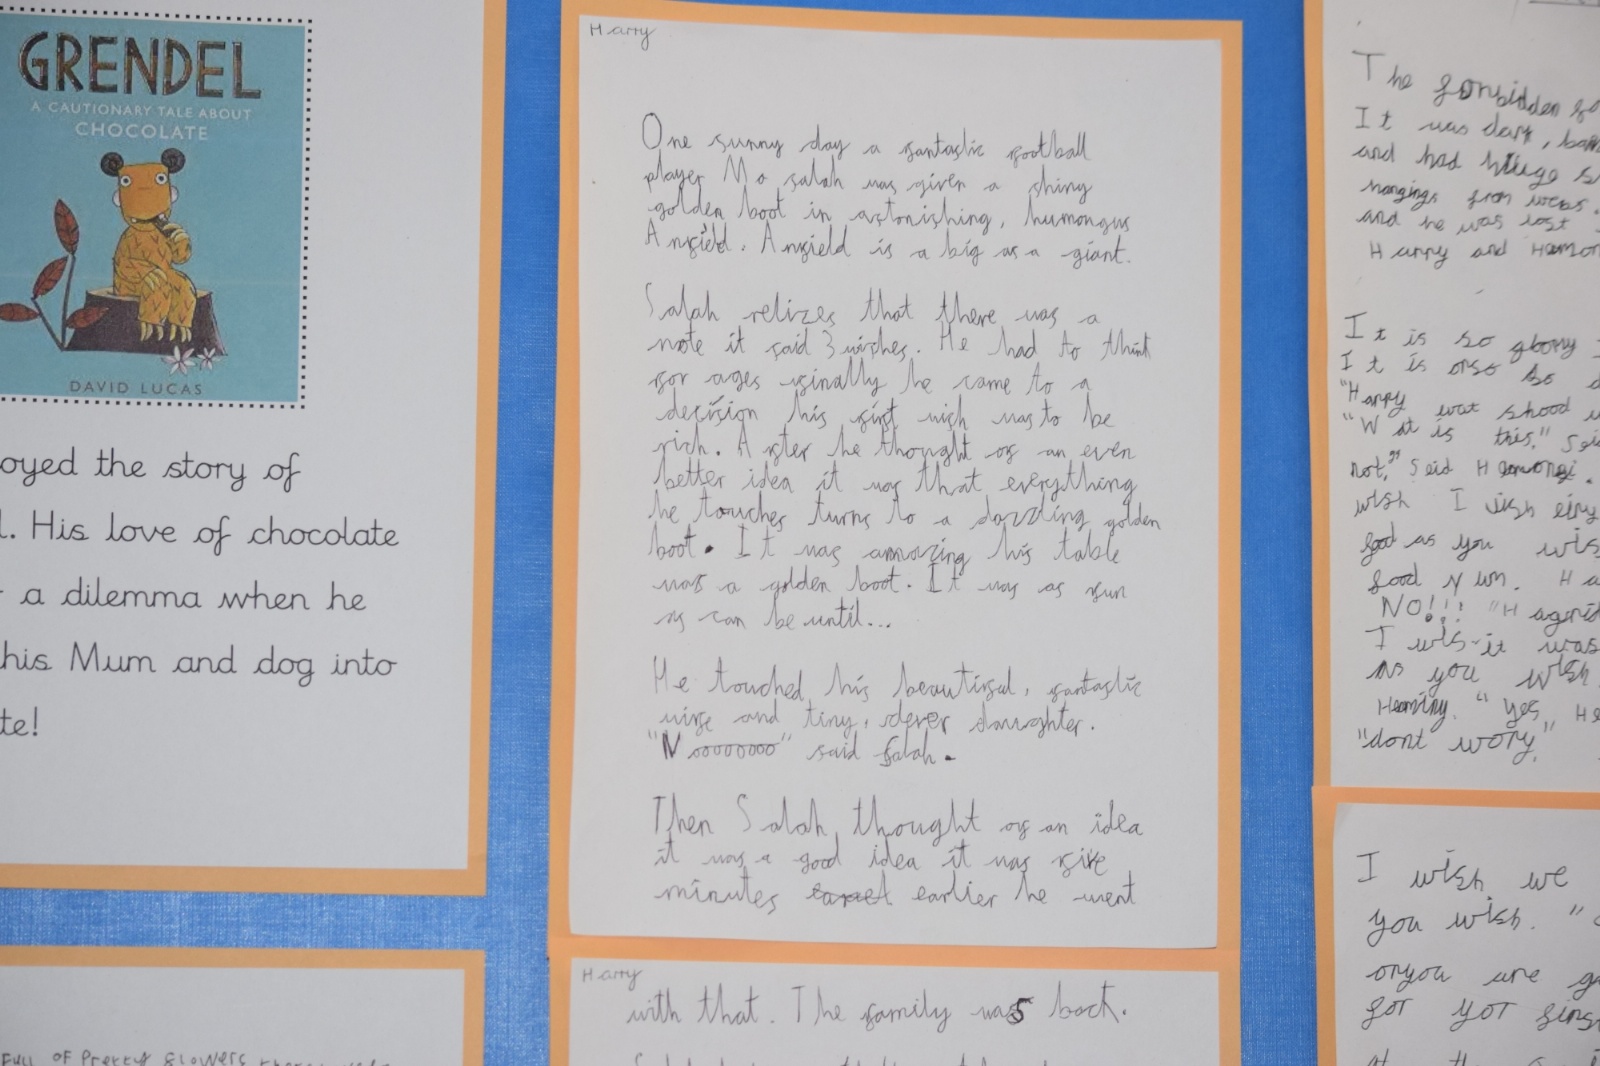 GRENDEL
A CAUTIONARY TALE ABOUT
CHOCOLATE
DAVID LUCAS
oyed the story of
l. His love of chocolate
a dilemma when he
his Mum and dog into
te!
FULL OF Pretty flowers
Harry
One sunny day a fantastic football
player Mo salah was given a shiny
golden boot in astonishing, humongus
Anfield. Anfield is a big as a giant.
Salah relizes that there was a
note it said 3 wishes. He had to think
for ages finally he came to a
decision his first wish was to be
rich. After he thought of an even
better idea it was that everything
he touches turns to a dazzling golden
boot. It was amazing his table
was a golden boot. It was as fun
as can be until...
He touched his beautiful, fantastic
wife and tiny, clever daughter.
"Noooooooo" said Salah.
Then Salah thought of an idea
it was a good idea it was five
minutes earlier he went
Harry
with that. The family was back.
The forbidden fo
It was dark,
and had huge s
hangings from
and he was lost
Harry and
It is so gloomy I
It is orso so d
"Harry wat shood w
"Wat is this," Sai
not," Said
wish I wish
good as you wis
food yum. Ha
NO!!! "Hagrid
I wis it was
as you wish
"Yes," He
"dont wory,"
I wish we
you wish. "
oryou are g
for yor